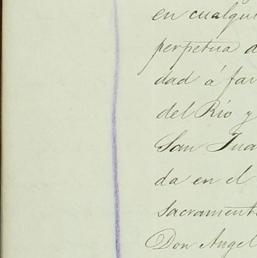 en cualqui
perpetua d
dad á fav
del Río y
San Jua
da en el
sacrament
Don Angel